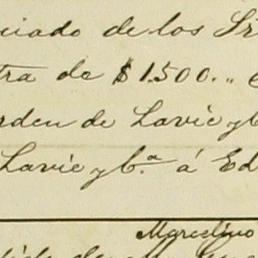 ciado de los Sr
tra de $1.500.,
rden de Lavie y C
Lavie y C.ª á Ed
Marcelino